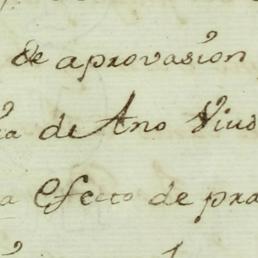 de aprovasión
de Ano Viud
a Efecto de pra